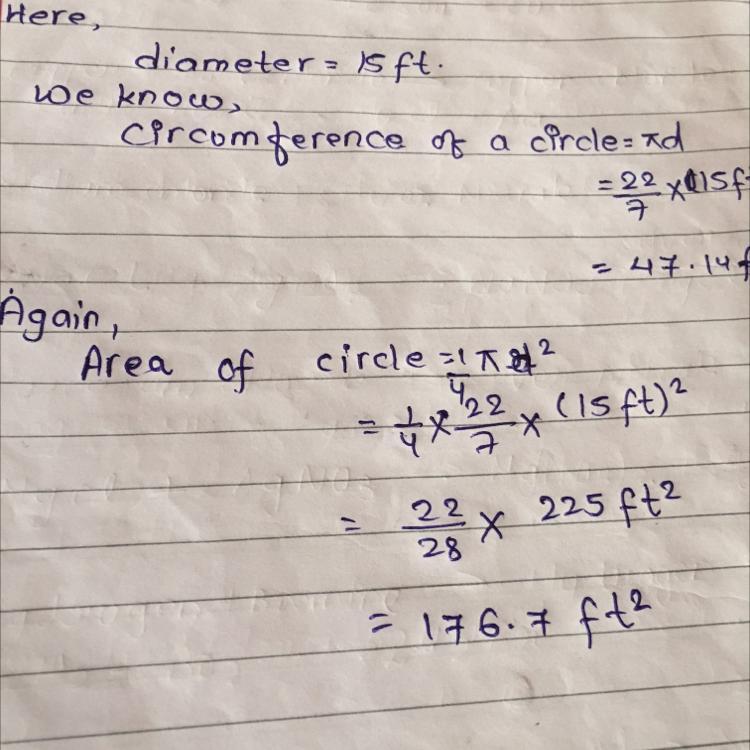 Here,
diameter = 15 ft.
We know,
Circomference of a circle = πd
= 22/7 × (15 f
= 47.14 f
Again,
Area of circle = 1/4 π d²
= 1/4 × 22/7 × (15 ft)²
= 22/28 × 225 ft²
= 176.7 ft²